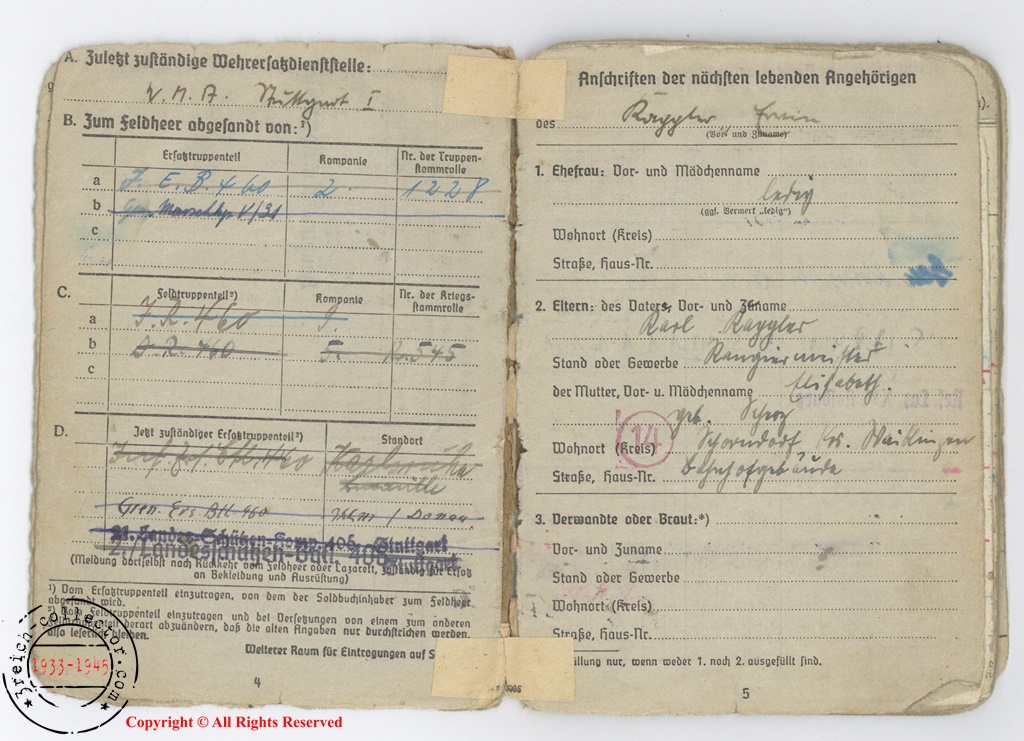 A. Zuletzt zuständige Wehrersatzdienststelle:
W. M. A. Stuttgart I
B. Zum Feldheer abgesandt von:¹)
Ersatztruppenteil Kompanie Nr. der Truppenstammrolle
a J. E. B. 460 2. 1228
b Marschkp. V/31
c
C. Feldtruppenteil²) Kompanie Nr. der Kriegsstammrolle
a J. R. 460 9.
b J. R. 460 5. 545
c
D. Jetzt zuständiger Ersatztruppenteil²) Standort
Karlsruhe
Gren. Ers. Btl. 460 Ulm / Donau
Landes-Schützen-Komp. 405, Stuttgart
2./Landesschützen-Batl. 406 Stuttgart
(Meldung dortselbst nach Rückkehr vom Feldheer oder Lazarett, zuständig für Ersatz
an Bekleidung und Ausrüstung)
¹) Vom Ersatztruppenteil einzutragen, von dem der Soldbuchinhaber zum Feldheer
abgesandt wird.
²) Vom Feldtruppenteil einzutragen und bei Versetzungen von einem zum anderen
derart abzuändern, daß die alten Angaben nur durchstrichen werden,
also leserlich bleiben.
Weiterer Raum für Eintragungen auf S
4
Anschriften der nächsten lebenden Angehörigen
des Käppler Erwin
(Vor- und Zuname)
1. Ehefrau: Vor- und Mädchenname
ledig
(ggf. Vermerk „ledig“)
Wohnort (Kreis)
Straße, Haus-Nr.
2. Eltern: des Vaters, Vor- und Zuname
Karl Käppler
Stand oder Gewerbe Rangiermeister
der Mutter, Vor- u. Mädchenname Elisabeth.
geb.
1/4
Wohnort (Kreis) Schorndorf Krs. Waiblingen
Straße, Haus-Nr. Bahnhofgebäude
3. Verwandte oder Braut:*)
Vor- und Zuname
Stand oder Gewerbe
Wohnort (Kreis)
Straße, Haus-Nr.
üllung nur, wenn weder 1. noch 2. ausgefüllt sind.
5
3reich-collector.com
1933-1945
Copyright © All Rights Reserved